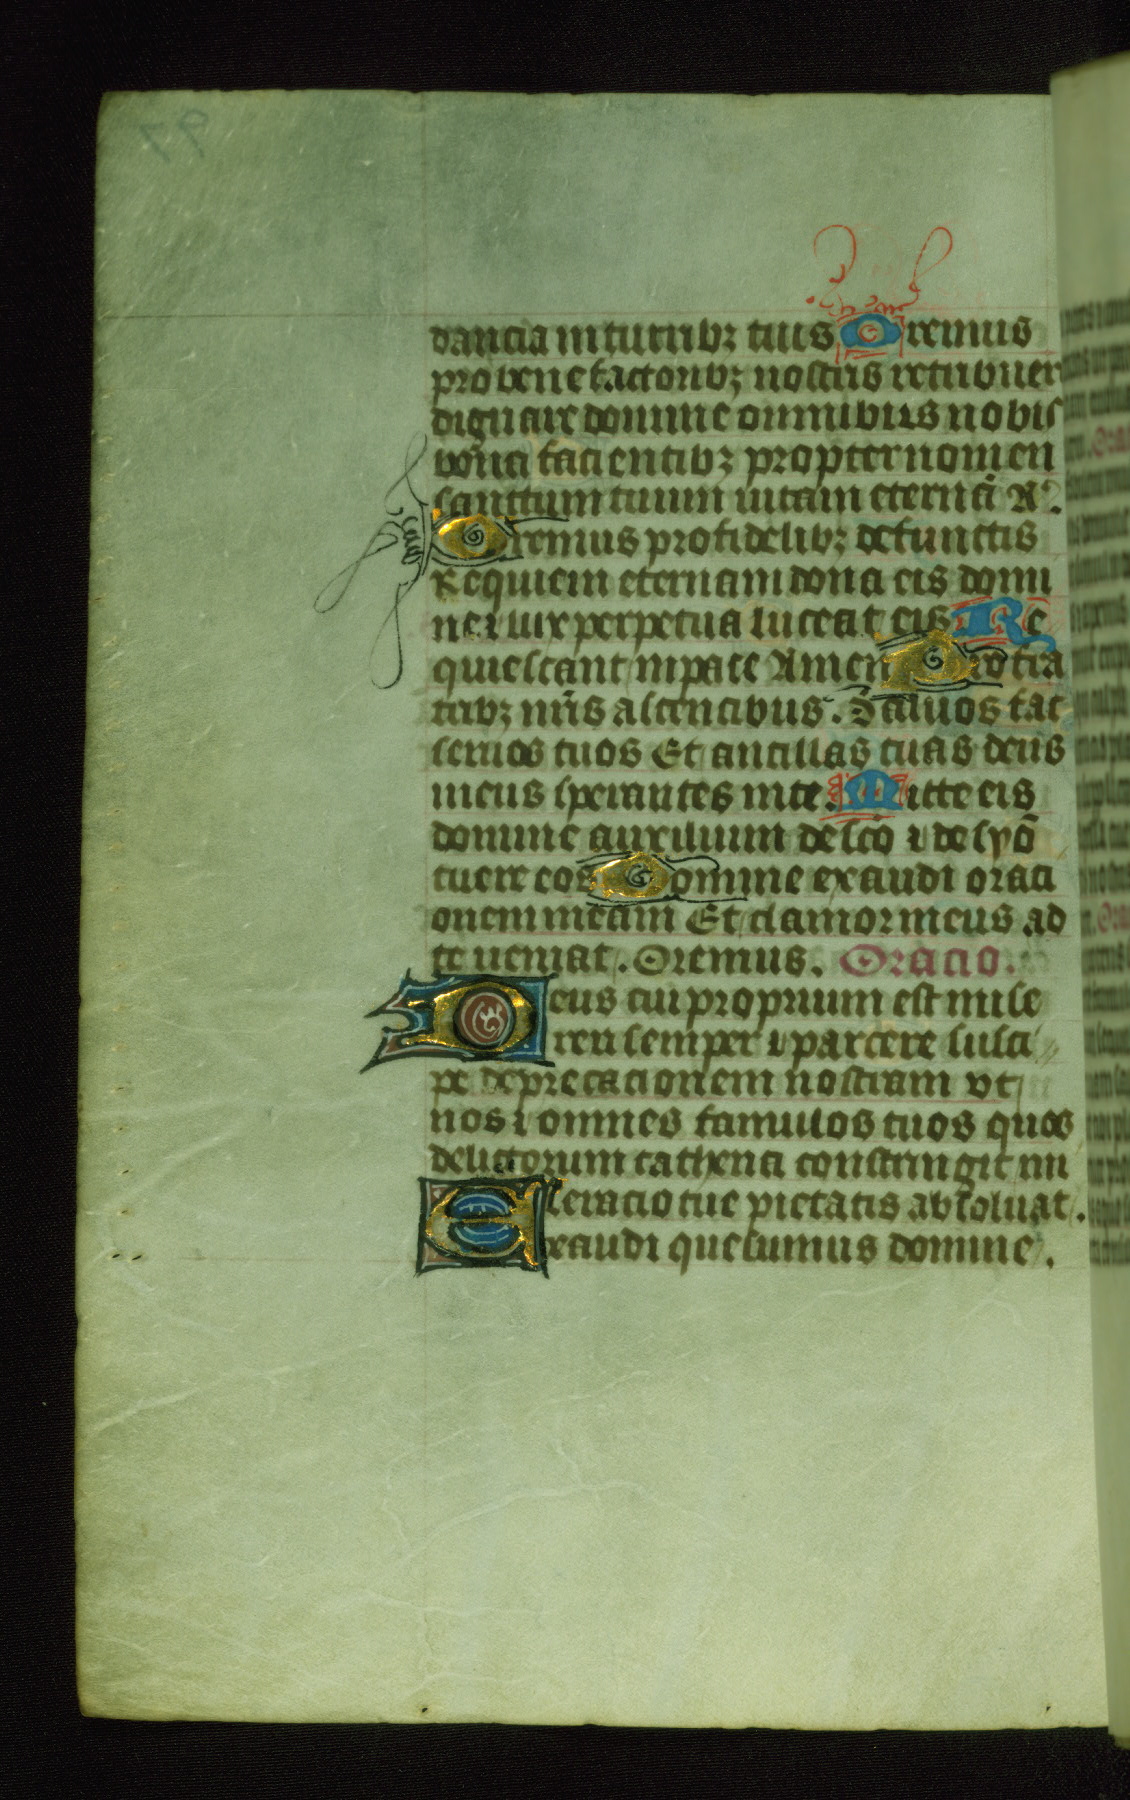 dancia in turribꝫ tuis Oremus
pro benefactoribꝫ nostris retribuer
dignare domine omnibus nobis
bona facientibꝫ propter nomen
sanctum tuum uitam eternā A.
Oremus pro fidelibꝫ defunctis
Requiem eternam dona eis domi
ne ⁊ lux perpetua luceat eis Re
quiescant in pace Amen Pro fra
tribꝫ nr̄is absencibus. Saluos fac
seruos tuos Et ancillas tuas deus
meus sperantes in te. Mitte eis
domine auxilium de sc̄o ⁊ de syō
tuere eos Domine exaudi oraci
onem meam Et clamor meus ad
te ueniat. Oremus. Oracio.
Deus cui proprium est mise
reri semper ⁊ parcere susci
pe deprecacionem nostram vt
nos ⁊ omnes famulos tuos quos
delictorum cathena constringit mi
seracio tue pietatis absoluat.
Exaudi quesumus domine.